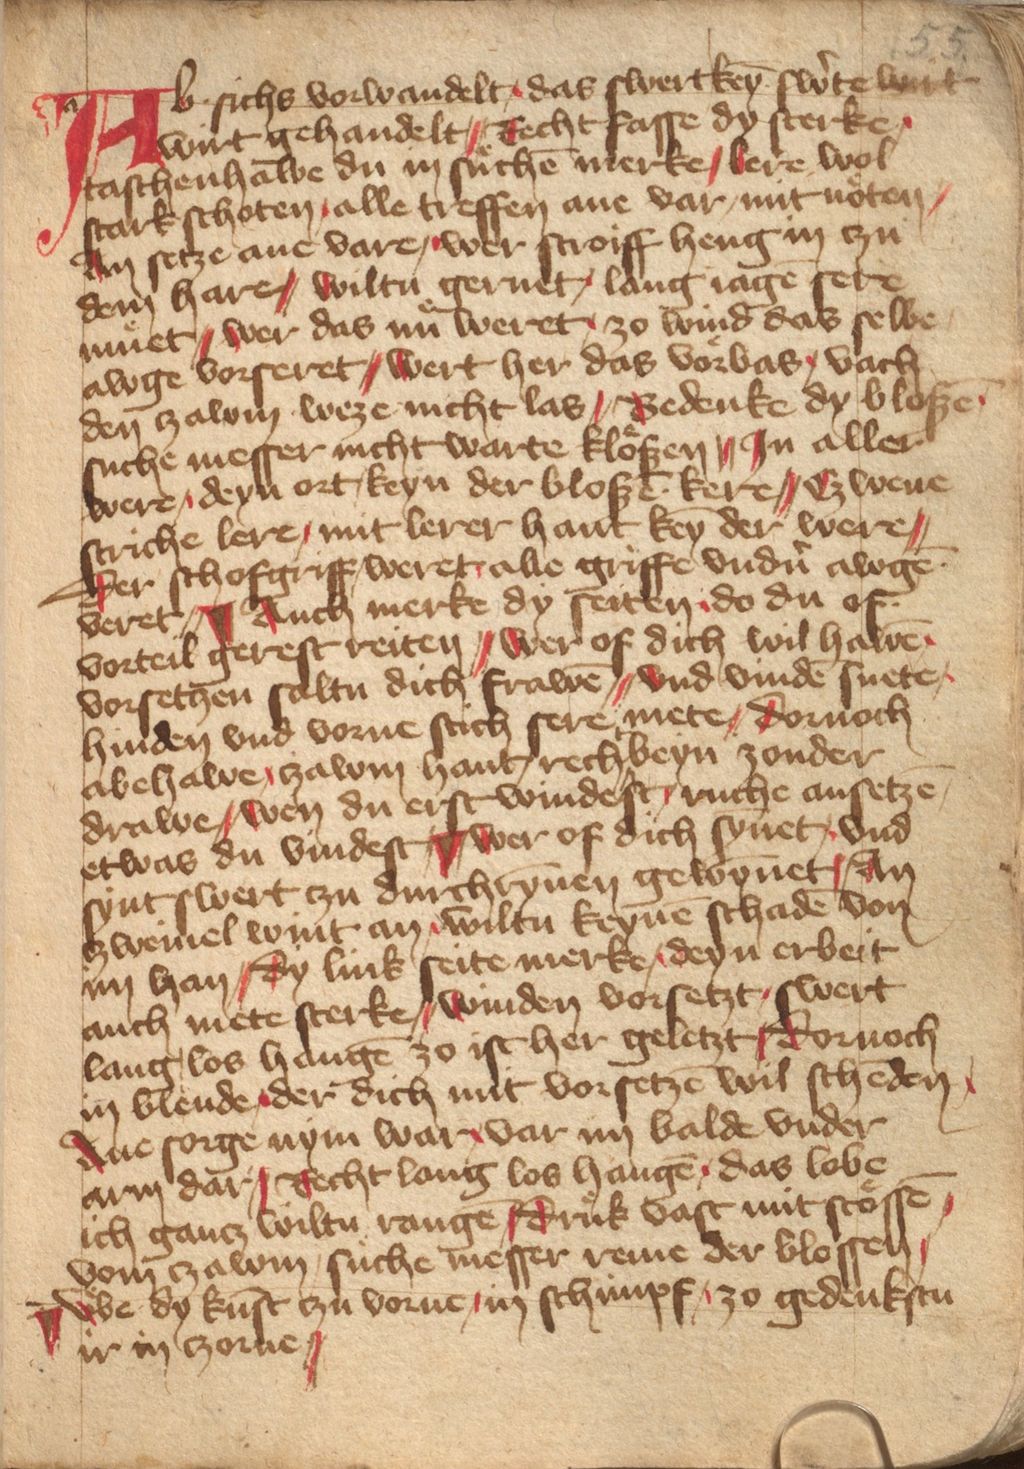 55
Ab sichs vorwandelt / das swert keȳ sẘte wirt
wirt gehandelt / Recht fasse dy sterke /
taschenhāwe du in sůchē merke / lere wol
stark schoten / alle treffen ane var / mit nöten /
An setze ane vare / wer stroiff heng in czu
dem hare / wiltu gernet / lang iagē sere
můet / wer das nů weret / zo wind das selbe
awge vorseret / Wert her das vörbas / vach
den czawm weze nicht las / Bedenke dy bloßē /
suche messer nicht warte klößen / In aller
were / deyn ort / keyn der bloßē kere / Czwene
striche lere / mit lerer hant keȳ der were /
Der schofgriff / weret / alle griffe vndn̑ awgē
veret / Auch merke dy seiten / do du of
vorteil gerest reiten / Wer of dich wil hawē /
vorsetzen saltu dich frawē / vnd vindē snete /
hinden vnd vorne stich sere mete / Dornoch
abehawe / czawm hant / rechbeyn zonder
drawe / wen du erst windest / ruche ansetzē /
etwas du vindest / Wer of dich synet / vnd
synt swert czu durchrȳnen gewȳnet / An
czweiuel wint an / wiltu keynē schadē von
im han / Dy link seite merke / deyn erbeit
auch mete sterke / winden vorsetzt / swert
lang los hangē zo ist her geletzt / Dornoch
in blende / der dich mit vorsetzē wil schēden /
Ane sorge nym war / var im balde vnder
arm dar / Recht lang los hangē / das lobe
ich gancz wiltu rangē / Drůk vast mit stössē /
vom czawm / suche messer reme der blossen /
Vbe dy kunst czu vorne / in schimpf / zo gedenkstu
ir in czorne /